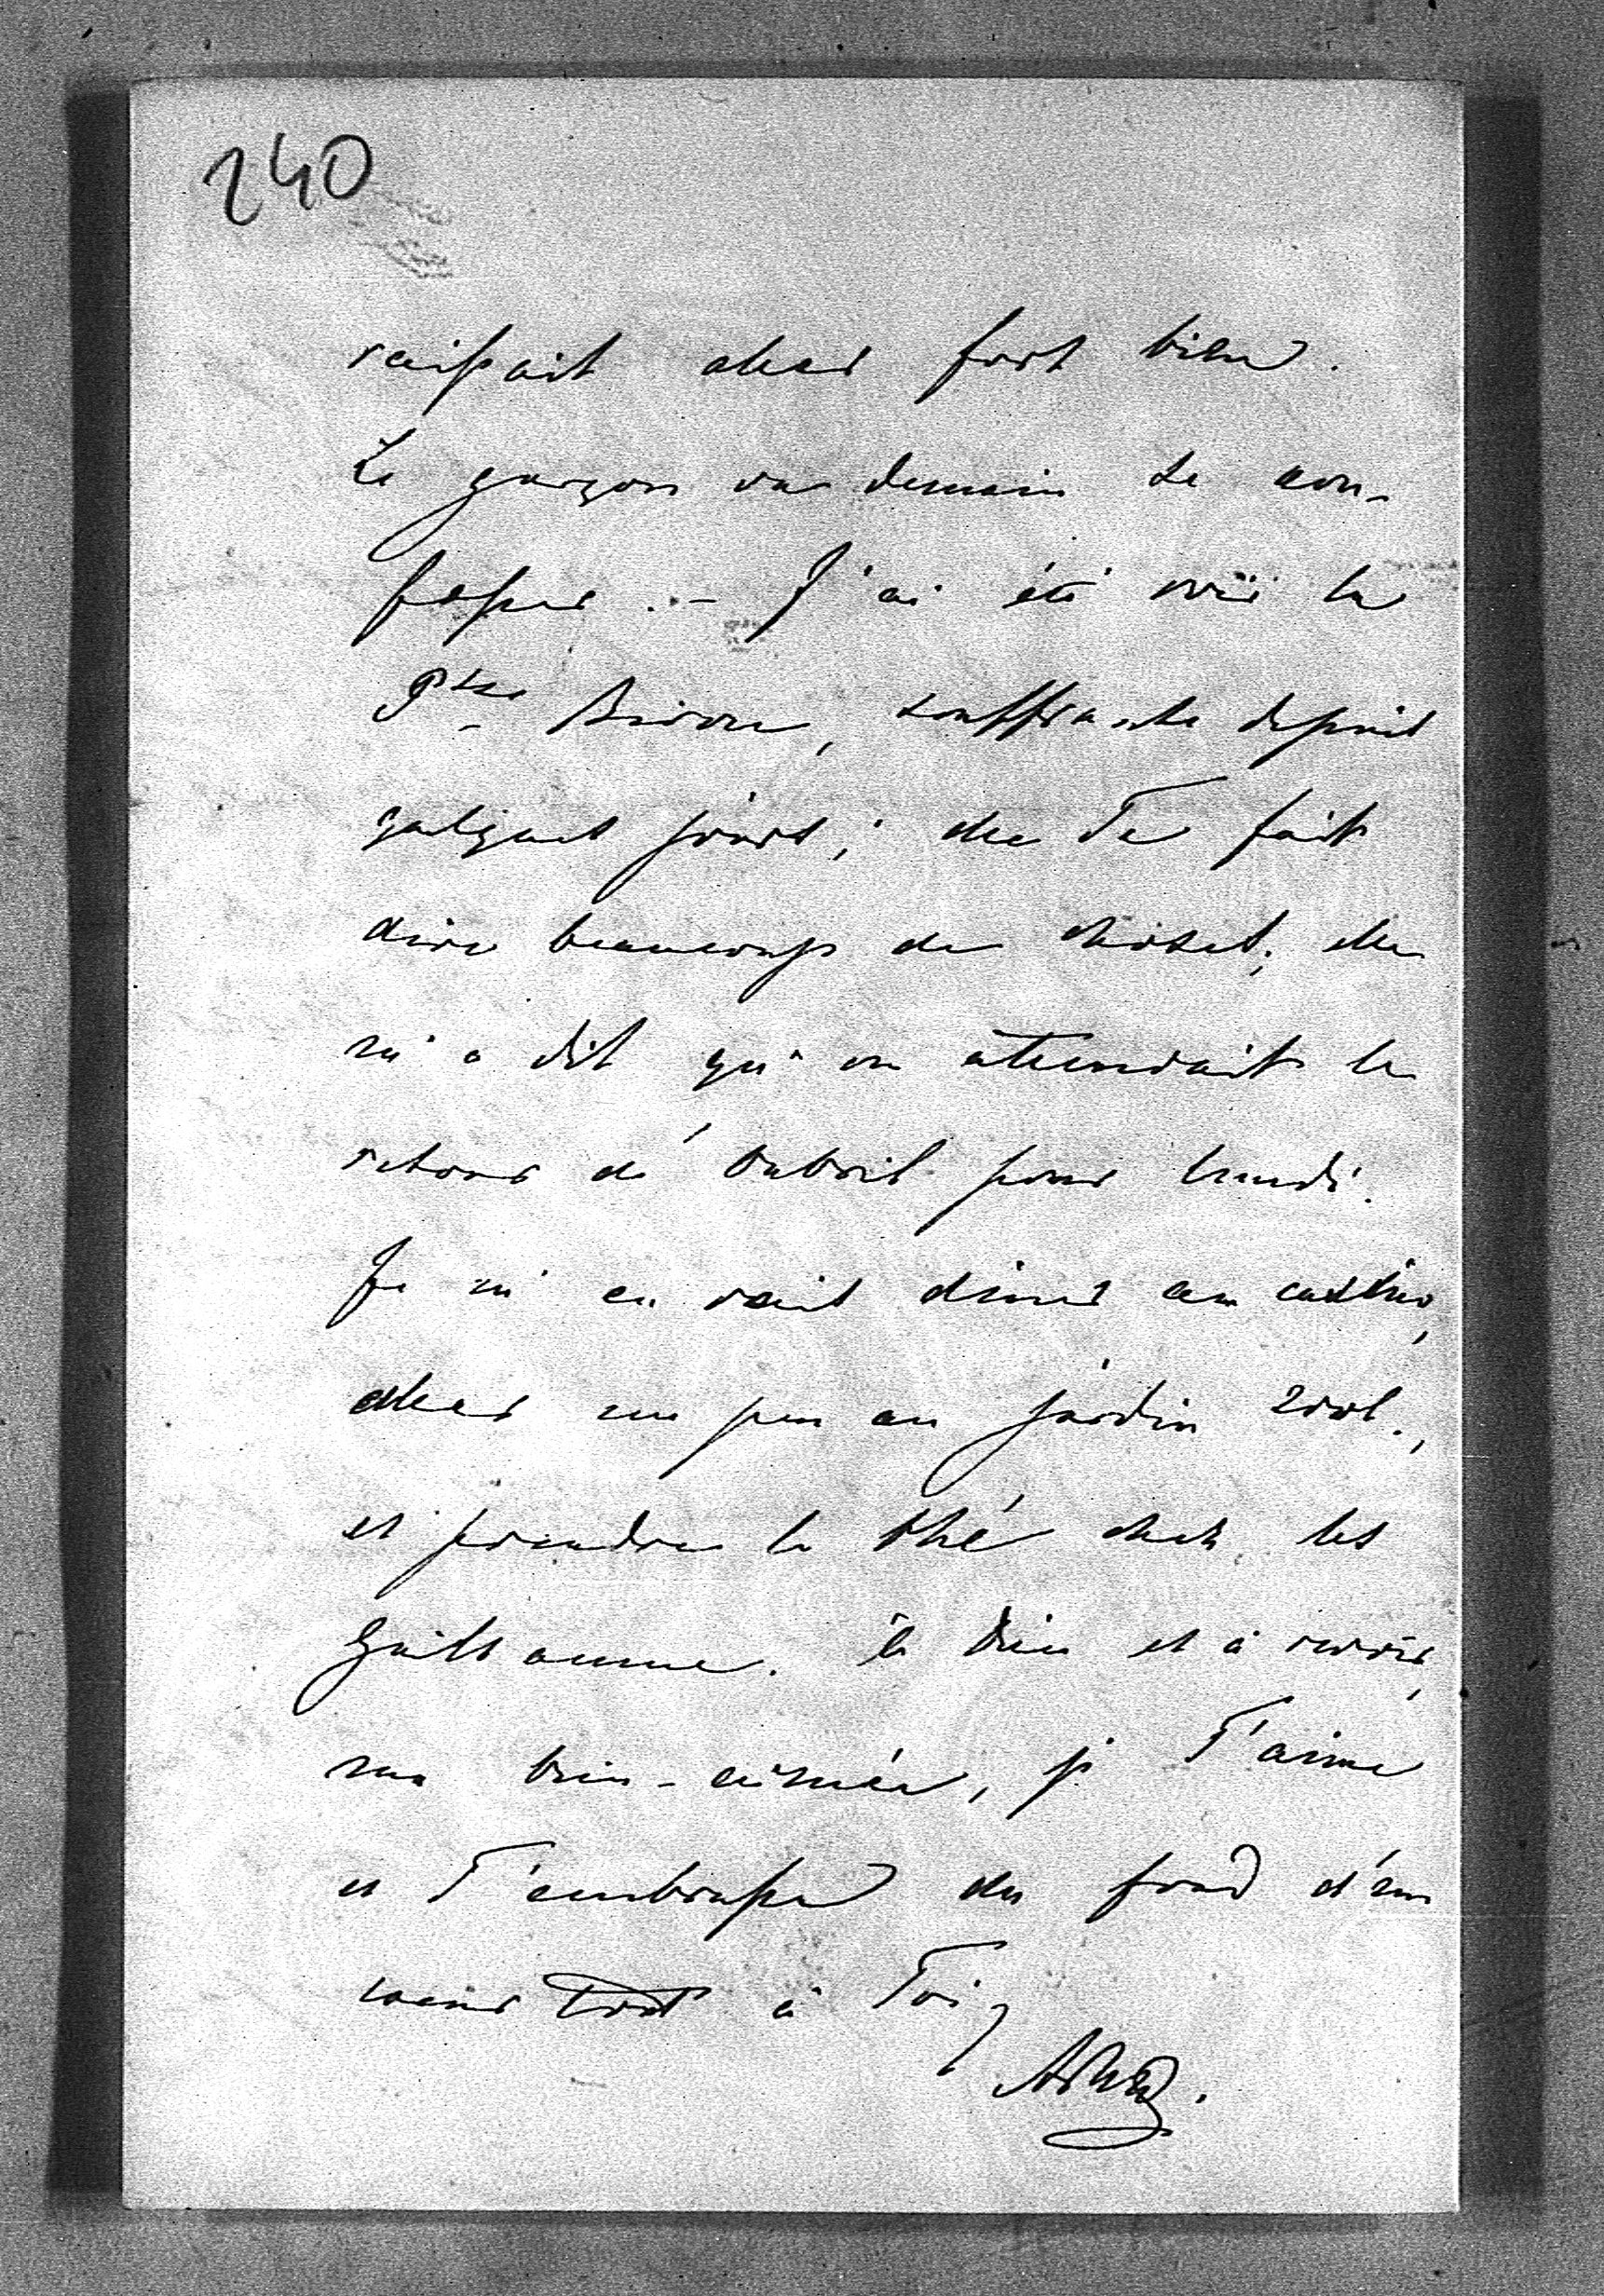 240
raissait aller fort bien.
Le garçon va demain se con-
fesser. – J'ai été voir la
Psse Biron, souffrante depuis
quelques jours; elle Te fait
dire beaucoup de choses; elle
m'a dit qu'on attendait le
retour de pour lundi.
Je m'en vais dîner au casino,
aller un peu au jardin zool.,
et prendre le thé chez les
Guillaume. à Dieu et à revoir,
ma bien-aimée, je T'aime
et T'embrasse du fond d'un
coeur tout à Toi,